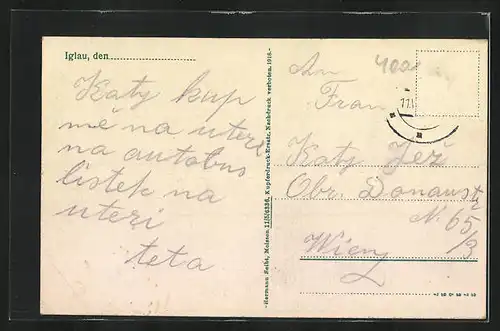 Iglau, den
Katy kup
mě na uterí
na autobus
lístek na
uteri
teta
Hermann Seibt, Meissen. Kupferdruck-Ersatz. Nachdruck verboten. 1918.
An
Fran
Katy Ježi
Obr. Donaust
N. 65/3
Wien